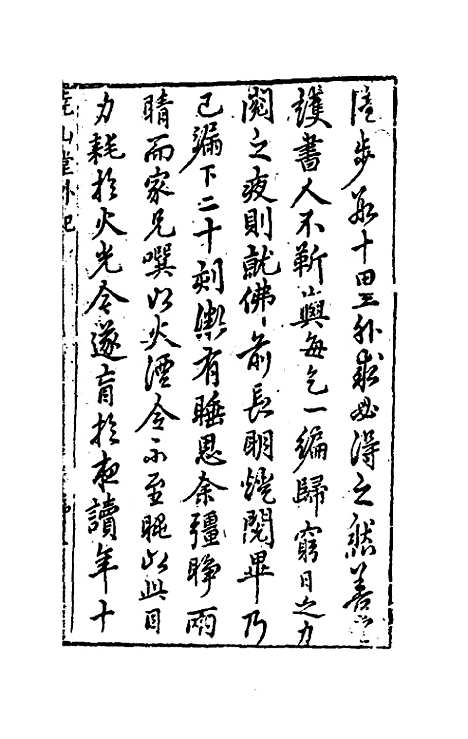 徒步數十里外必得之然善
護書人不靳輿每乞一編歸窮日之力
閱之夜則就佛前長明燈閱畢乃
已漏下二十刻漸有睡思余彊睜兩
睛而家兄噀以火酒令不至眠以此目
力耗於火光令遂盲於夜讀年十
堯山堂外紀